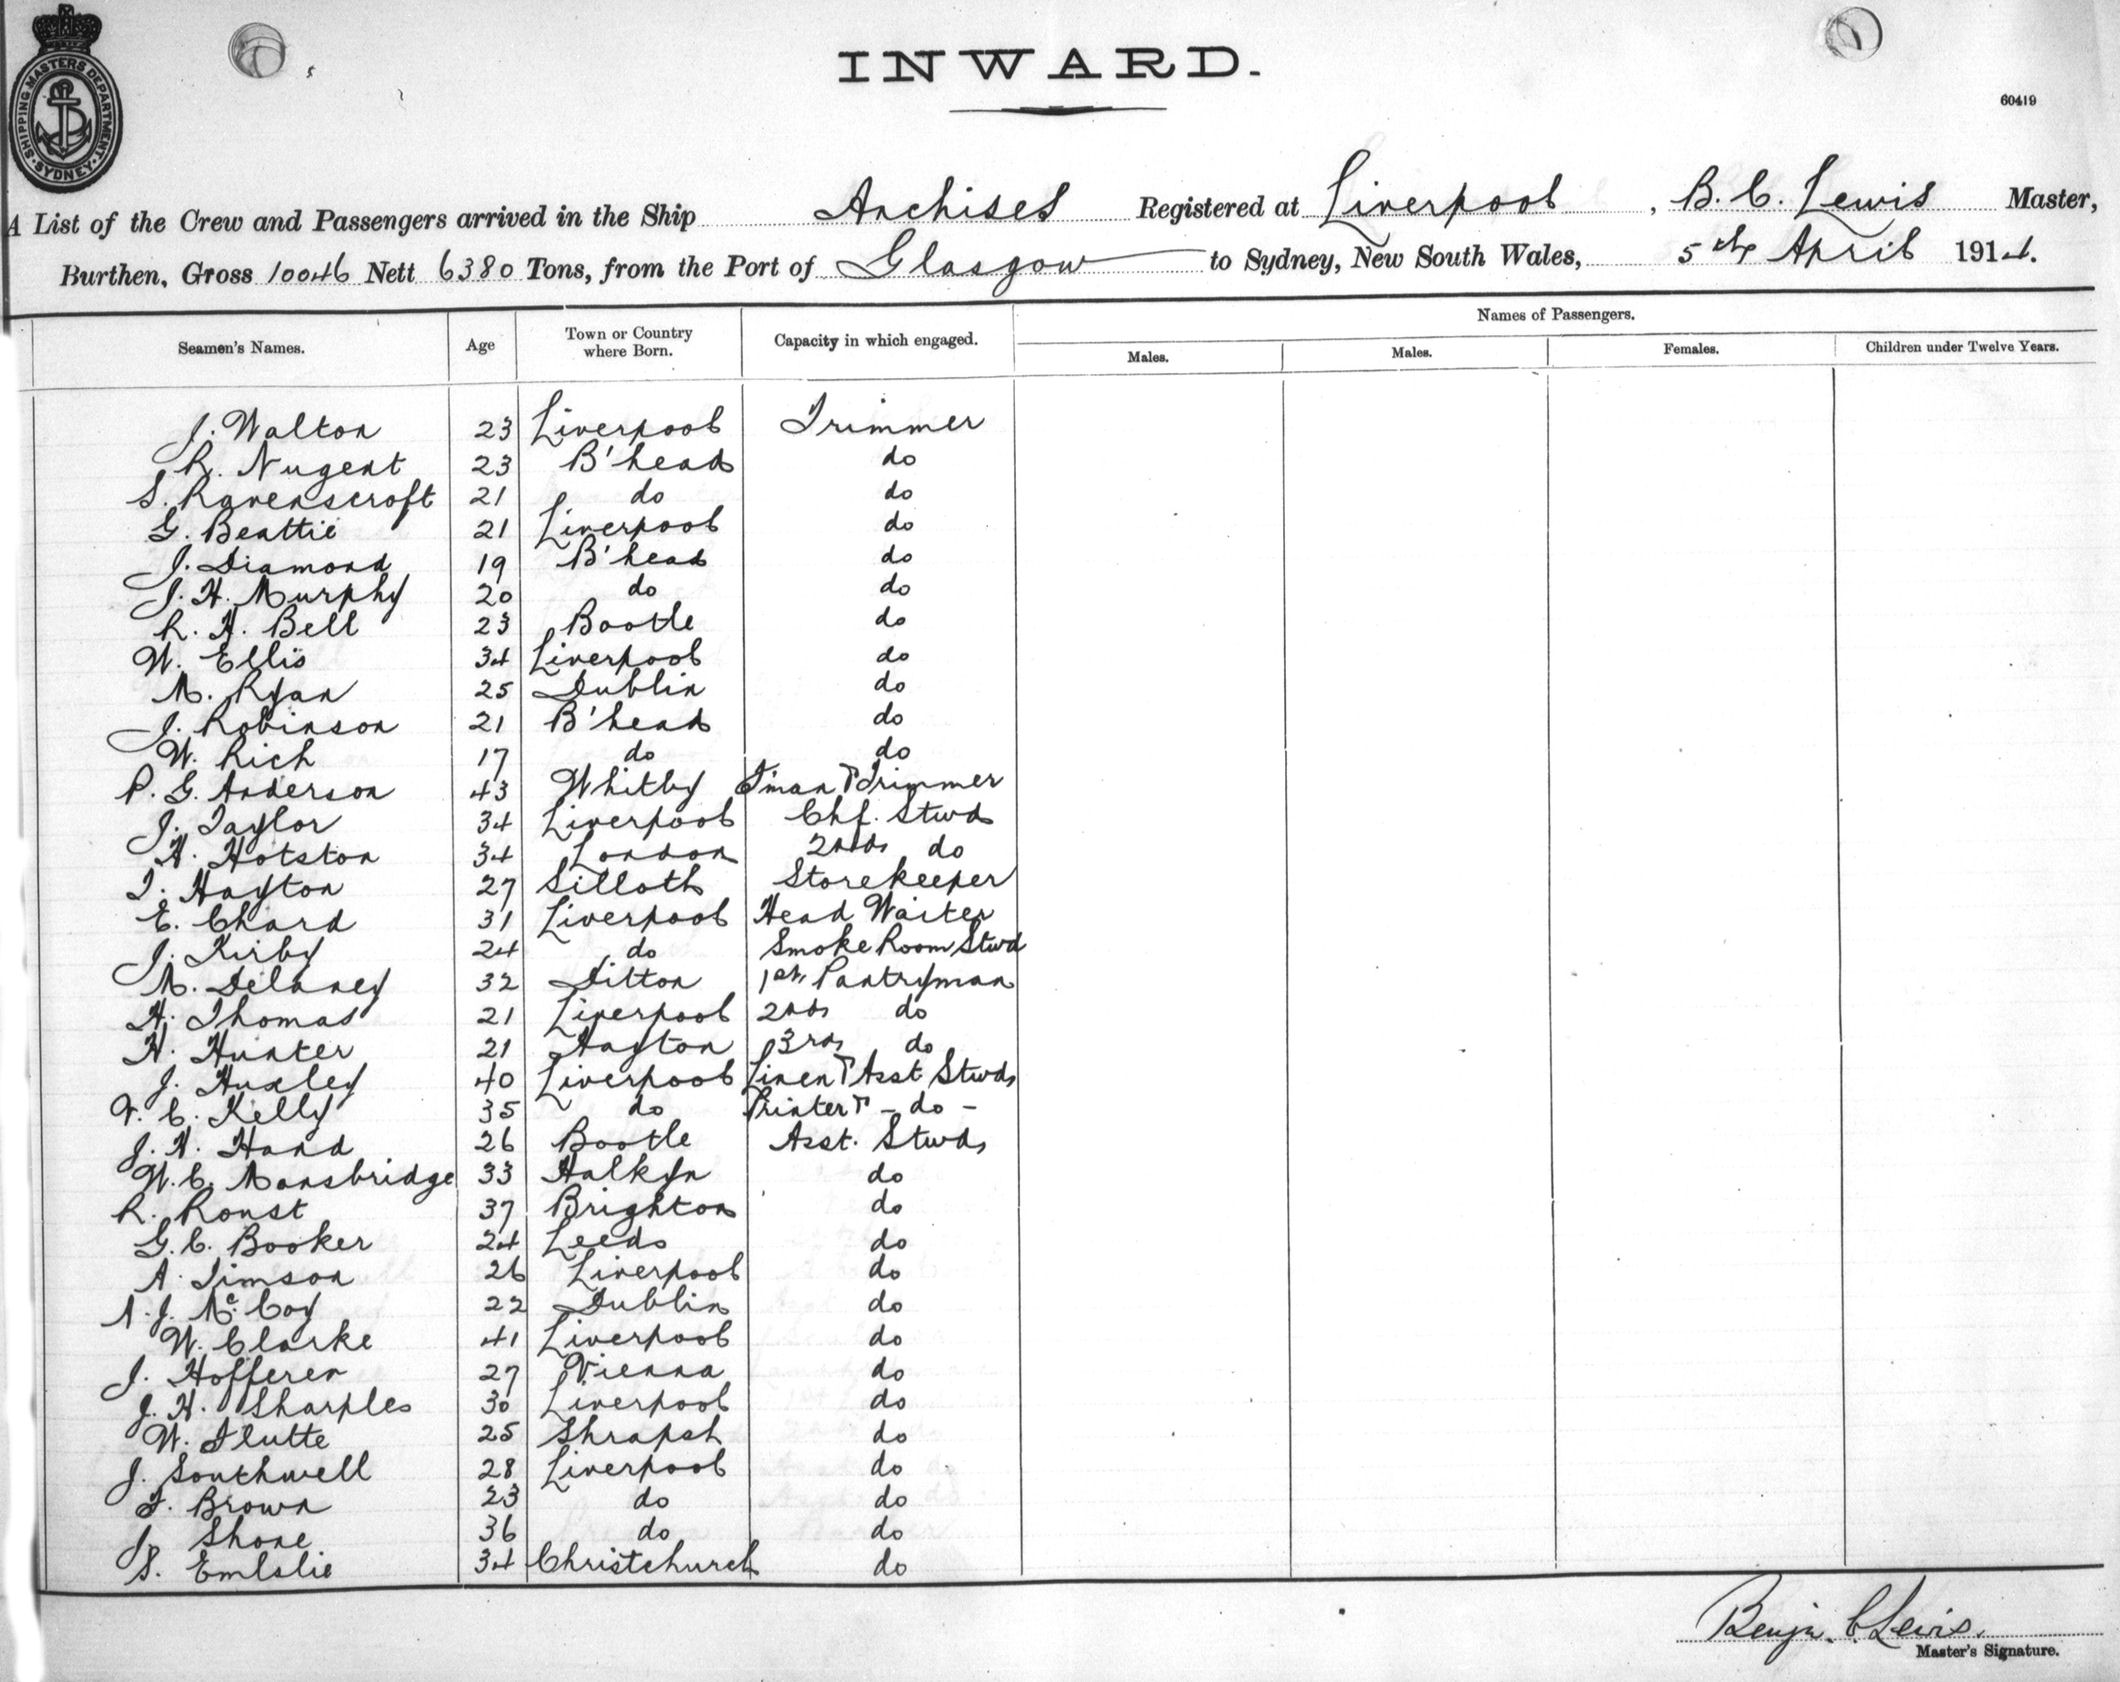 SHIPPING MASTERS DEPARTMENT · SYDNEY ·
INWARD.
60419
A List of the Crew and Passengers arrived in the Ship Anchises Registered at Liverpool, B. C. Lewis Master,
Burthen, Gross 10046 Nett 6380 Tons, from the Port of Glasgow to Sydney, New South Wales, 5th April 1914.
Seamen's Names. Age Town or Country where Born. Capacity in which engaged. Names of Passengers.
Males. Males. Females. Children under Twelve Years.
J. Walton 23 Liverpool Trimmer
R. Nugent 23 B'head do
S. Ravenscroft 21 do do
G. Beattie 21 Liverpool do
J. Diamond 19 B'head do
J. H. Murphy 20 do do
R. H. Bell 23 Bootle do
W. Ellis 34 Liverpool do
M. Ryan 25 Dublin do
J. Robinson 21 B'head do
W. Rich 17 do do
P. G. Anderson 43 Whitby F'man & Trimmer
J. Taylor 34 Liverpool Chf. Stwd
H. Hotston 34 London 2nd do
T. Hayton 27 Silloth Storekeeper
E. Chard 31 Liverpool Head Waiter
J. Kirby 24 do Smoke Room Stwd
M. Delaney 32 Ditton 1st Pantryman
H. Thomas 21 Liverpool 2nd do
H. Hunter 21 Hayton 3rd do
J. Huxley 40 Liverpool Linen & Asst Stwd
V. C. Kelly 35 do Printer & - do -
J. H. Hand 26 Bootle Asst. Stwd
W. C. Mansbridge 33 Halkyn do
R. Ronst 37 Brighton do
G. C. Booker 24 Leeds do
A. Timson 26 Liverpool do
A. J. McCoy 22 Dublin do
W. Clarke 41 Liverpool do
J. Hofferer 27 Vienna do
J. H. Sharples 30 Liverpool do
W. Flutte 25 Shropsh do
J. Southwell 28 Liverpool do
F. Brown 23 do do
J. Shone 36 do do
S. Emlslie 34 Christchurch do
Benjn. C. Lewis.
Master's Signature.